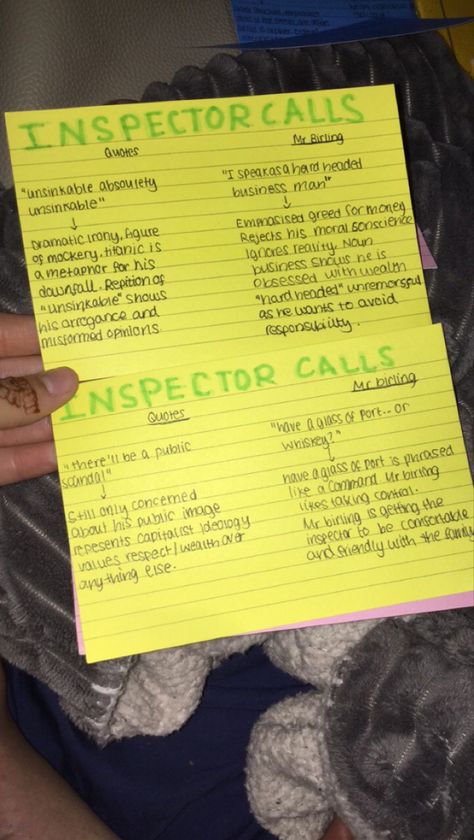 INSPECTOR CALLS
Quotes
Mr Birling
"unsinkable absoulety
unsinkable"
↓
Dramatic irony, figure
of mockery, titanic is
a metaphor for his
downfall. Repition of
"unsinkable" shows
his arrogance and
misformed opinions.
"I speak as a hard headed
business man"
↓
Emphasised greed for money
Rejects his moral conscience
Ignores reality. Noun
business shows he is
obsessed with wealth
"hard headed" unremorsful
as he wants to avoid
responsibility.
INSPECTOR CALLS
Quotes
Mr birling
"there'll be a public
scandal"
↓
Still only concerned
about his public image
repesents capitalist ideology
values respect/wealth over
anything else.
"have a glass of port.. or
whiskey?"
↓
have a glass of port is phrased
like a command Mr birling
likes taking control.
Mr birling is getting the
inspector to be comfortable
and friendly with the family